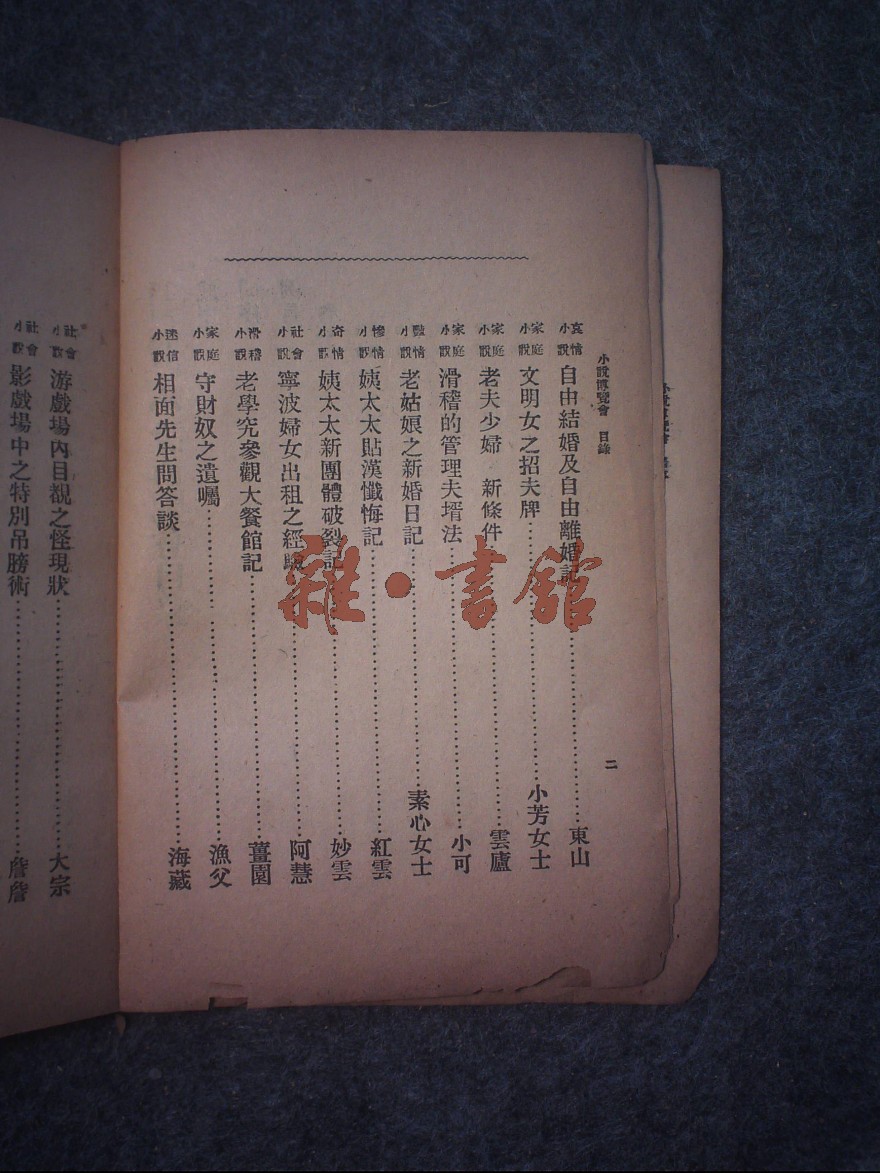 小說博覽會　目錄
二
哀情小說　自由結婚及自由離婚記……東山
家庭小說　文明女之招夫牌……小芳女士
家庭小說　老夫少婦　新條件……雲廬
家庭小說　滑稽的管理夫壻法……小可
豔情小說　老姑娘之新婚日記……素心女士
慘情小說　姨太太貼漢懺悔記……紅雲
奇情小說　姨太太新團體破裂記……妙雲
社會小說　寧波婦女出租之經驗……阿慧
滑稽小說　老學究參觀大餐館記……薑園
家庭小說　守財奴之遺囑……漁父
迷信小說　相面先生問答談……海藏
社會小說　游戲場內目覩之怪現狀……大宗
社會小說　影戲場中之特別吊膀術……詹詹
雜·書館